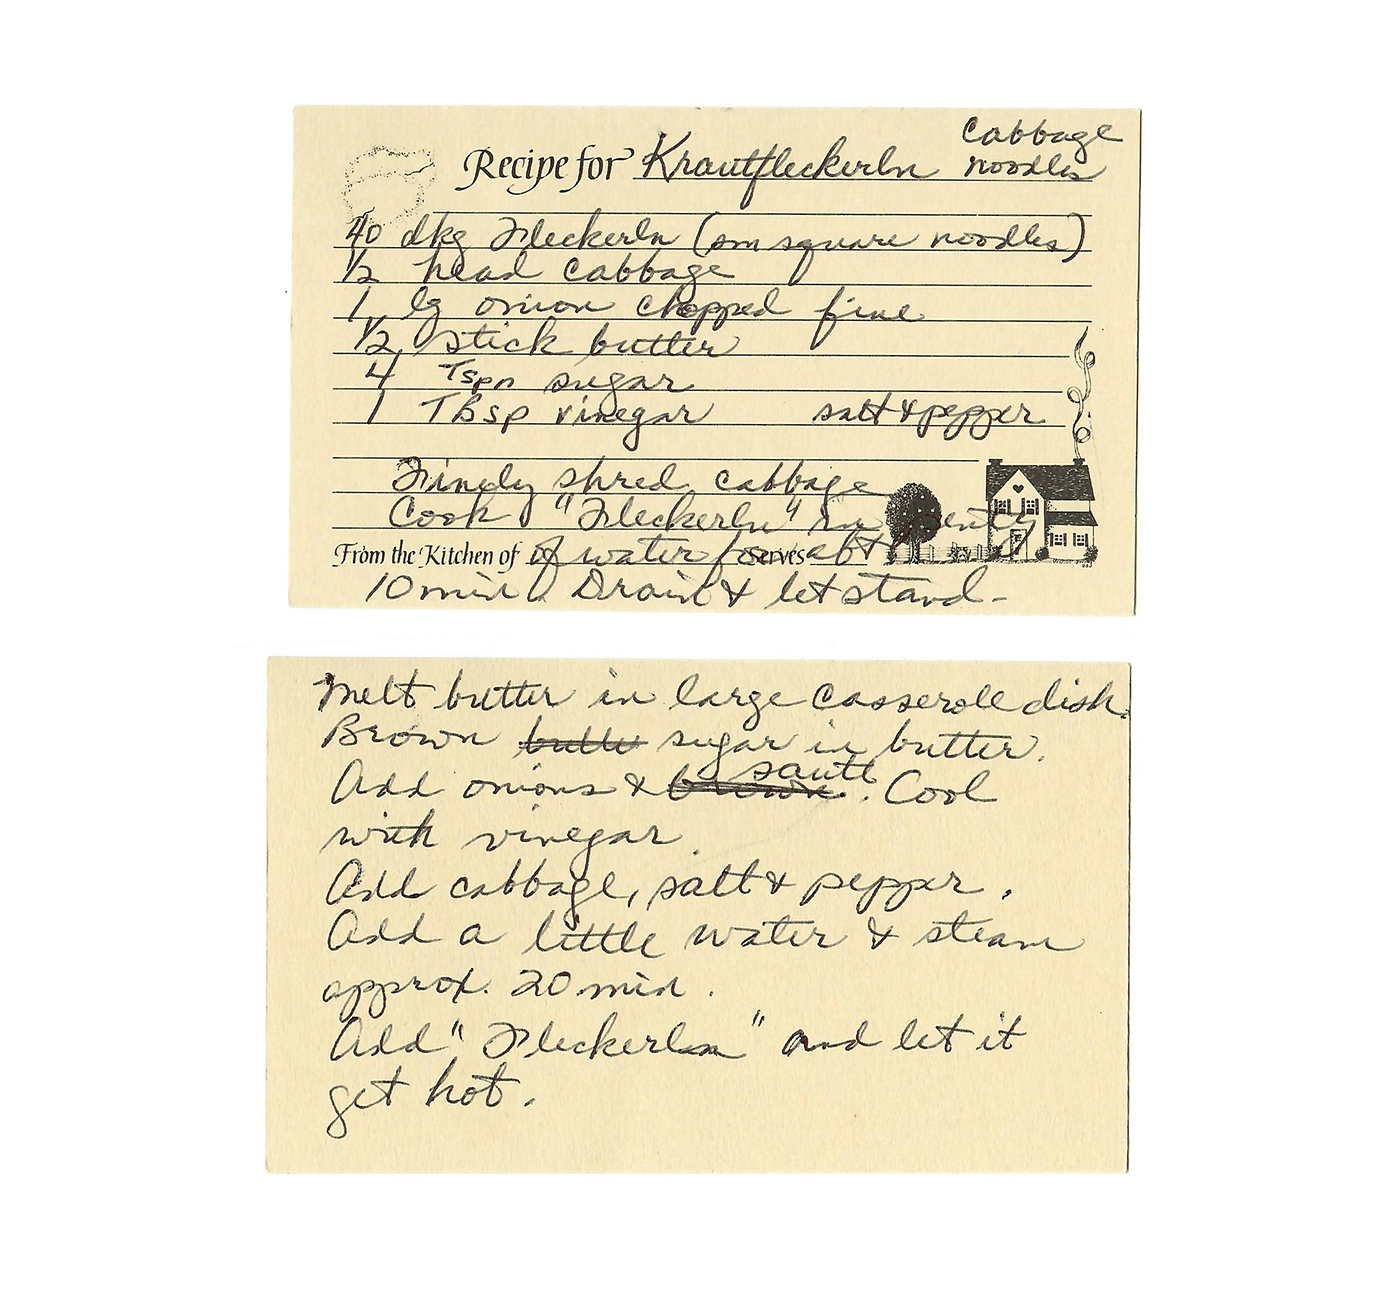 cabbage
Recipe for Krautfleckerln noodles
40 dkg Fleckerln (sm square noodles)
1/2 head cabbage
1 lg onion chopped fine
1/2 stick butter
4 Tspn sugar
1 TBsp vinegar salt & pepper
Finely shred cabbage
Cook "Fleckerln" in plenty
From the Kitchen of of water for Serves abt
10 min. Drain & let stand-
Melt butter in large casserole dish.
Brown butte sugar in butter.
saute
Add onions & brown. Cool
with vinegar.
Add cabbage, salt & pepper.
Add a little water & steam
approx. 20 min.
Add "Fleckerln" and let it
get hot.